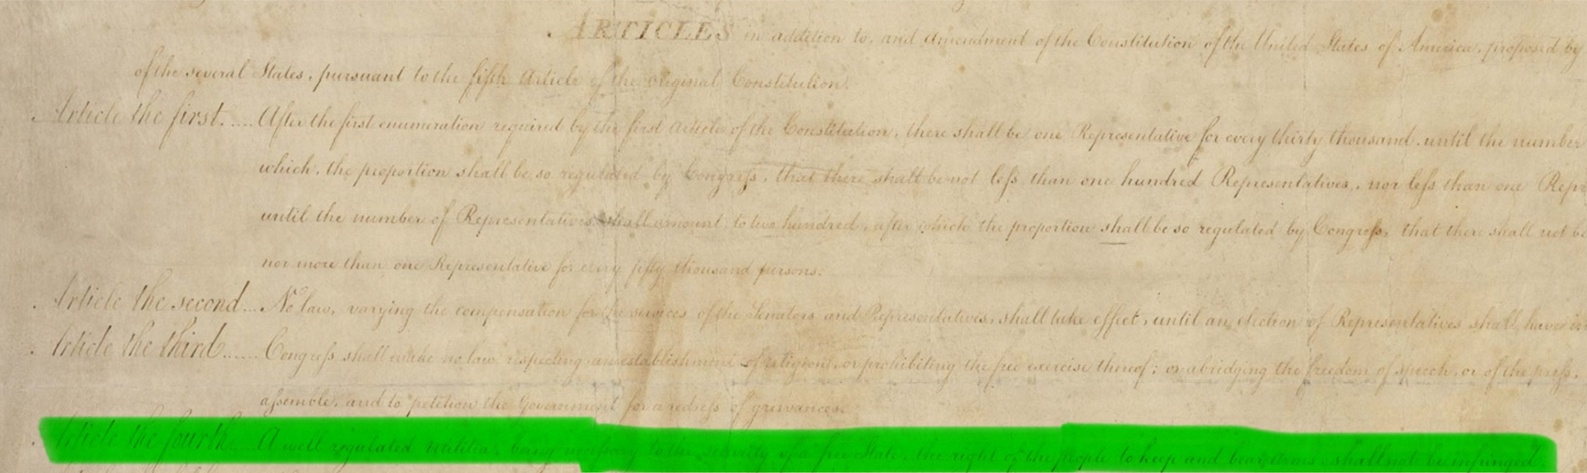 ARTICLES in addition to, and Amendment of the Constitution of the United States of America, proposed by
of the several States, pursuant to the fifth Article of the original Constitution.
Article the first..... After the first enumeration required by the first Article of the Constitution, there shall be one Representative for every thirty thousand, until the number
which, the proportion shall be so regulated by Congress, that there shall be not less than one hundred Representatives, nor less than one Repre
until the number of Representatives shall amount to two hundred, after which the proportion shall be so regulated by Congress, that there shall not be
nor more than one Representative for every fifty thousand persons.
Article the second... No law, varying the compensation for the services of the Senators and Representatives, shall take effect, until an election of Representatives shall have in
Article the third...... Congress shall make no law respecting an establishment of religion, or prohibiting the free exercise thereof; or abridging the freedom of speech, or of the press,
assemble, and to petition the Government for a redress of grievances.
Article the fourth... A well regulated militia, being necessary to the security of a free State, the right of the people to keep and bear arms, shall not be infringed